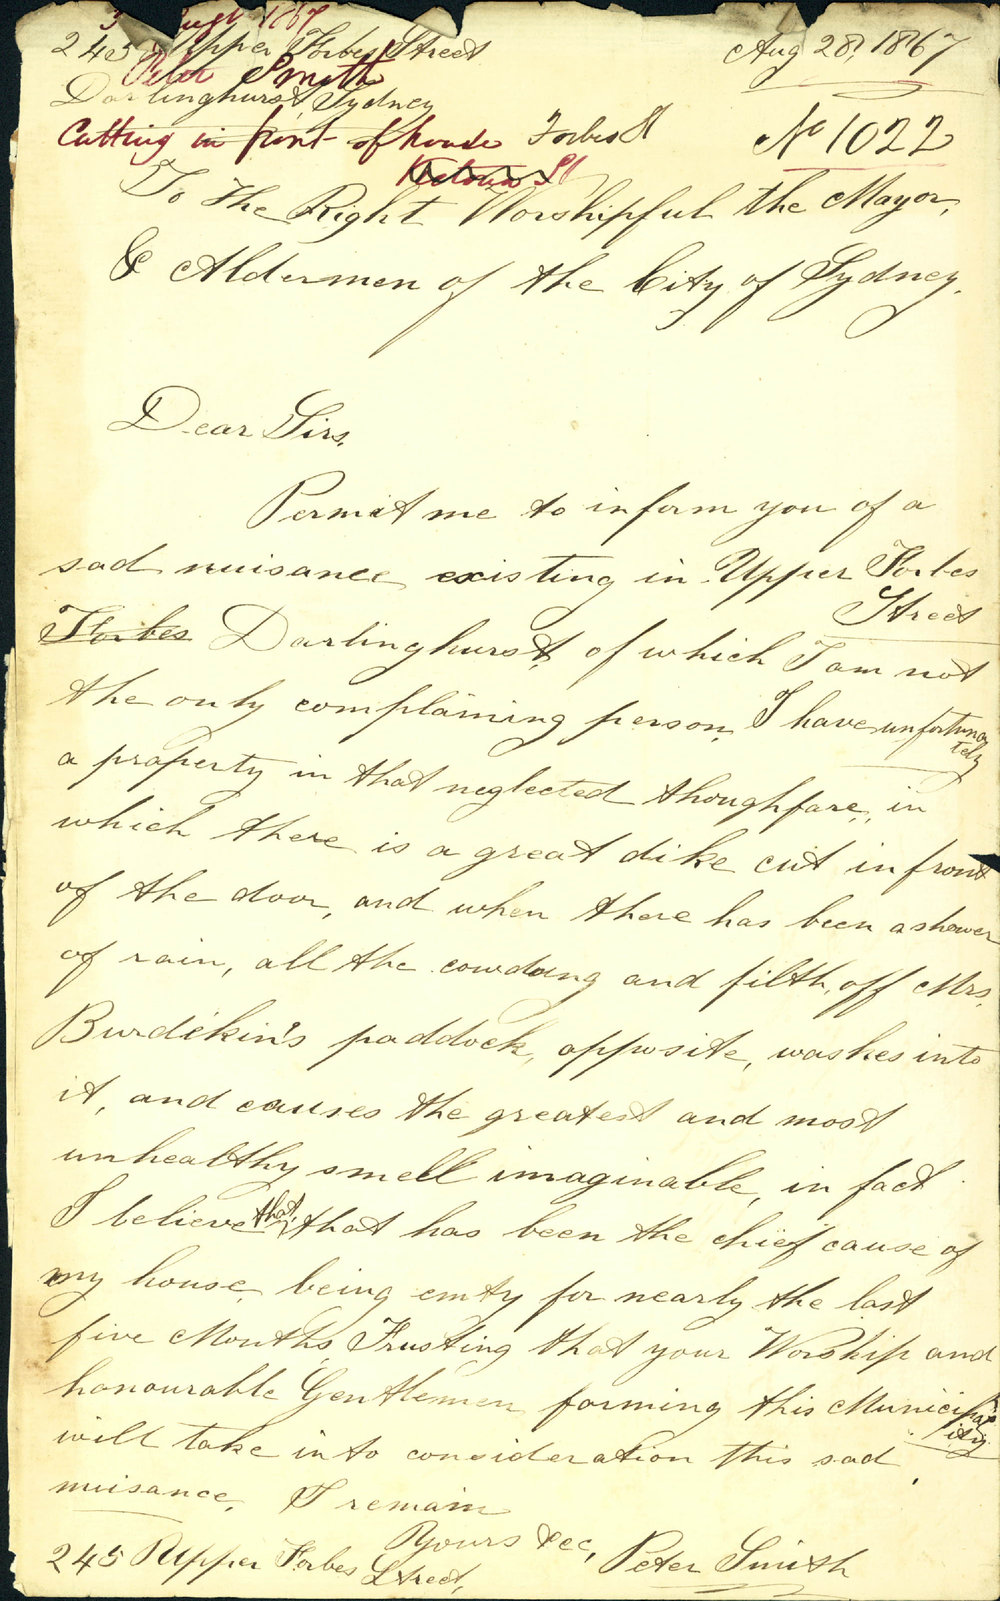 Augt 1867
245 Upper Forbes Street
Aug 28, 1867
Peter Smith
Darlinghurst, Sydney
Cutting in front of house Forbes St
No 1022
Victoria St
To The Right Worshipful the Mayor,
& Aldermen of the City of Sydney.
Dear Sirs,
Permit me to inform you of a
sad nuisance existing in Upper Forbes
Street
Forbes Darlinghurst, of which I am not
the only complaining person, I have unfortuna
tely
a property in that neglected thoughfare, in
which there is a great dike cut in front
of the door, and when there has been a shower
of rain, all the cowdung and filth, off Mrs.
Burdekin's paddock, opposite, washes into
it, and causes the greatest and most
unhealthy smell imaginable, in fact
I believe that, that has been the chief cause of
my house, being emty for nearly the last
five Months, Trusting that your Worship and
honourable Gentlemen forming this Municipal
ity
will take into consideration this sad
nuisance. I remain
Yours &ec,
245 Upper Forbes Street, Peter Smith